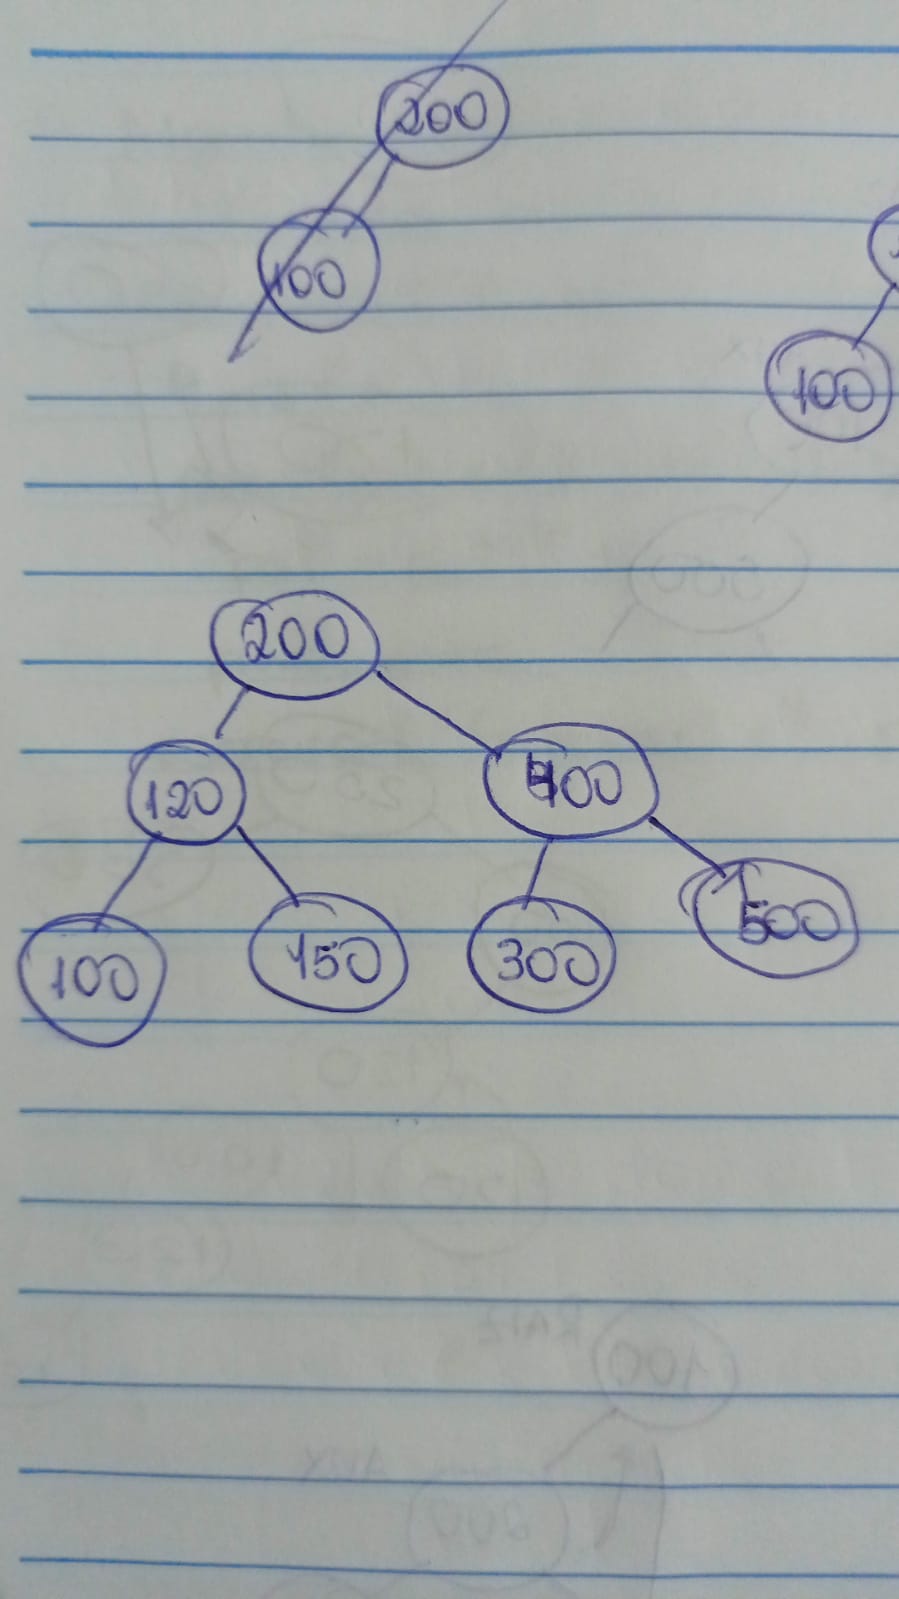 200
100
100
200
120
400
100
150
300
500